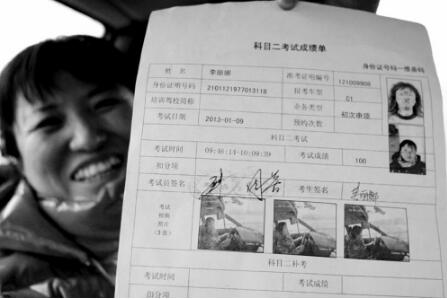 科目二考试成绩单
身份证号码一维条码
姓名 李丽娜 准考证明编号 121009908
身份证明号码 报考车型 01
培训驾校简称 业务类型 初次申领
考试日期 2013-01-09 预约次数
科目二考试
考试时间 考试成绩 100
扣分项
考试员签名 考生签名
考试
视频
照片
(3张)
科目二补考
考试时间 考试成绩
扣分项